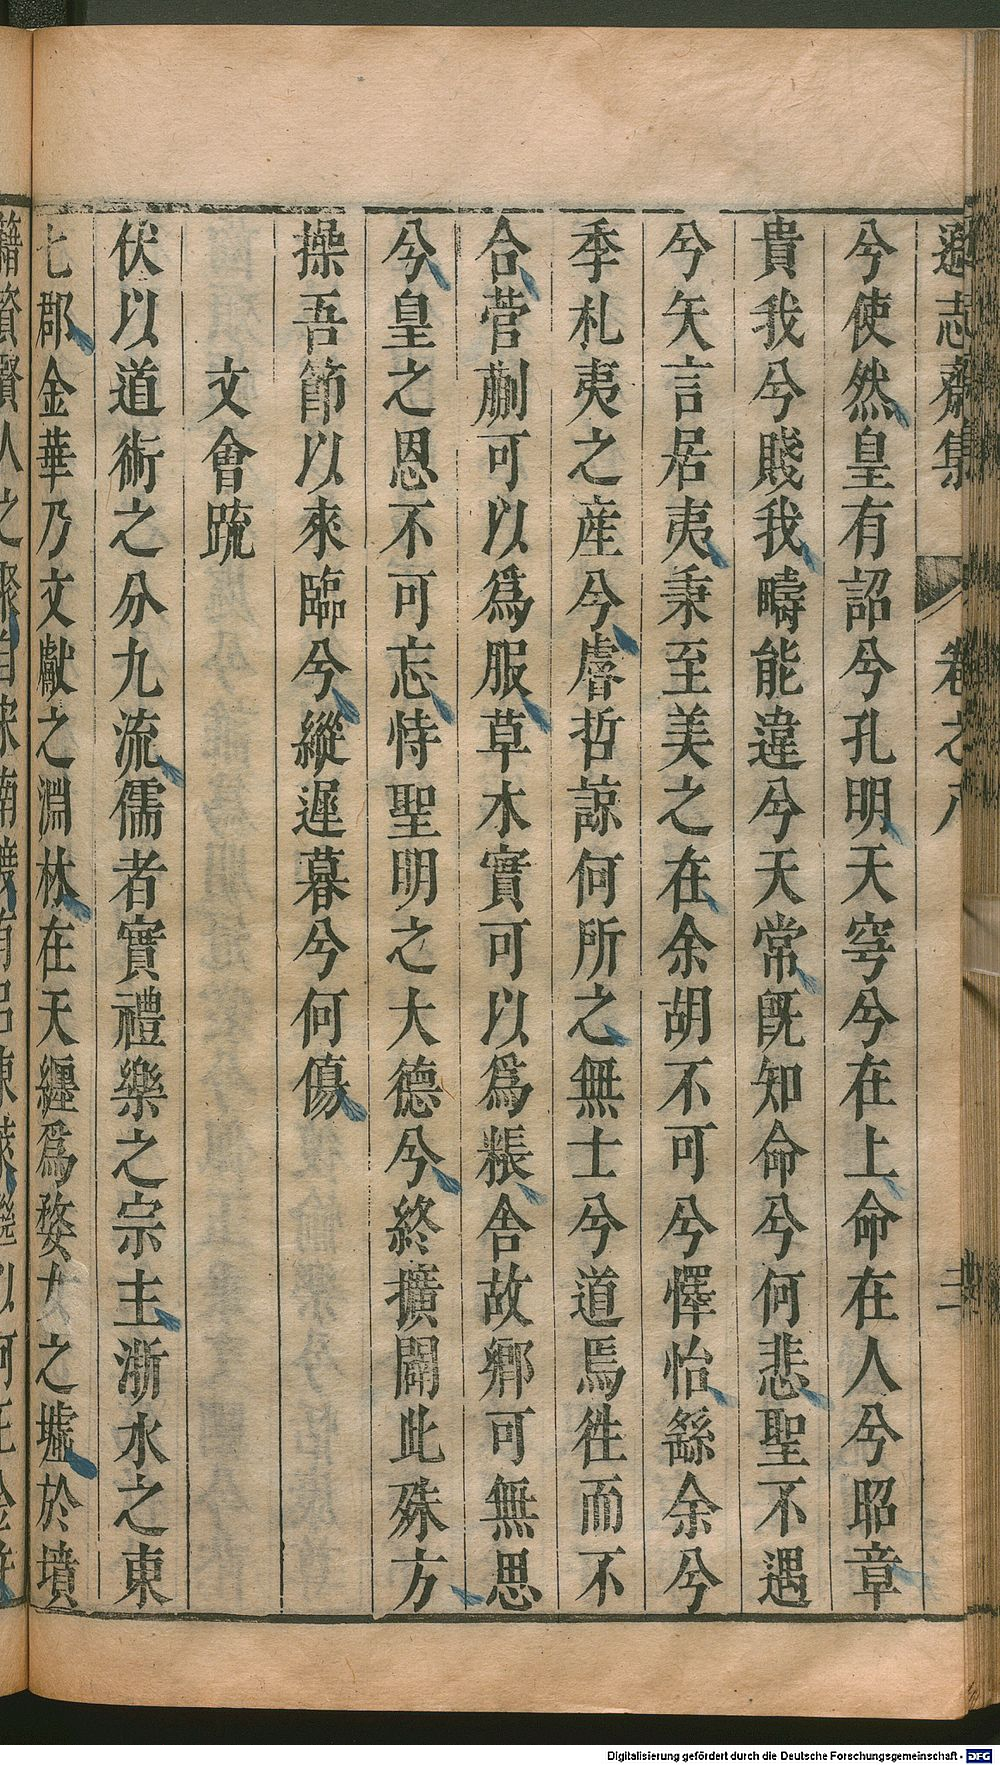 遜志齋集 卷之八
兮使然皇有詔兮孔明天穹兮在上命在人兮昭章
貴我兮賤我疇能違兮天常旣知命兮何悲聖不遇
兮矢言居夷秉至美之在余胡不可兮懌怡繇余兮
季札夷之産兮睿哲諒何所之無士兮道焉徃而不
合菅蒯可以爲服草木實可以爲粻舍故鄉可無思
兮皇之恩不可忘恃聖明之大德兮終擴闢此殊方
操吾節以來臨兮縱遲暮兮何傷
文會疏
伏以道術之分九流儒者實禮樂之宗主浙水之東
七郡金華乃文獻之淵林在天纏爲婺女之墟於墳
Digitalisierung gefördert durch die Deutsche Forschungsgemeinschaft - DFG